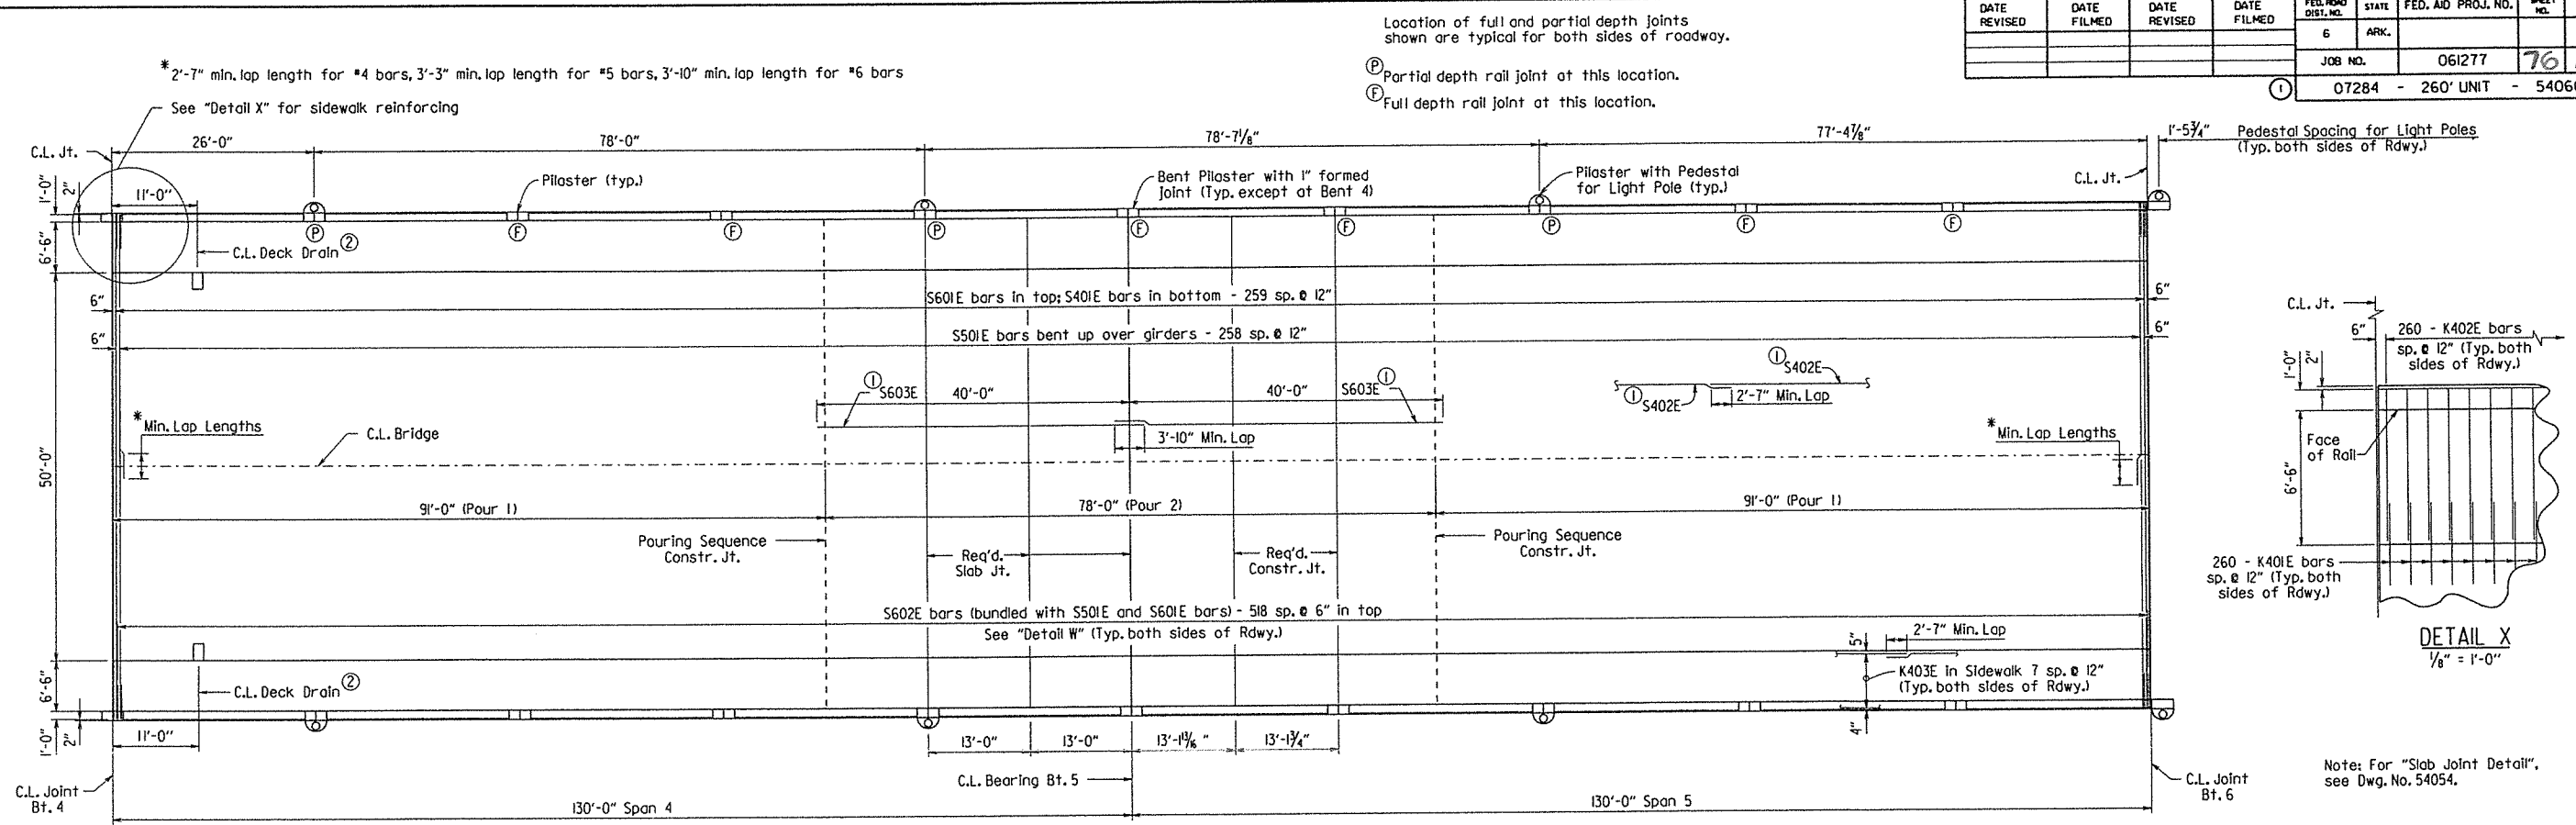 Location of full and partial depth joints
shown are typical for both sides of roadway.
Ⓟ Partial depth rail joint at this location.
Ⓕ Full depth rail joint at this location.
DATE REVISED
DATE FILMED
DATE REVISED
DATE FILMED
FED. ROAD DIST. NO.
STATE
FED. AID PROJ. NO.
SHEET NO.
6
ARK.
JOB NO.
061277
76
① 07284 - 260' UNIT -
* 2'-7" min. lap length for #4 bars, 3'-3" min. lap length for #5 bars, 3'-10" min. lap length for #6 bars
See "Detail X" for sidewalk reinforcing
C.L. Jt.
26'-0"
78'-0"
78'-7 1/8"
77'-4 7/8"
1'-5 3/4"
Pedestal Spacing for Light Poles
(Typ. both sides of Rdwy.)
1'-0"
2"
11'-0"
Pilaster (typ.)
Bent Pilaster with 1" formed
joint (Typ. except at Bent 4)
Pilaster with Pedestal
for Light Pole (typ.)
C.L. Jt.
Ⓟ
Ⓕ
Ⓕ
Ⓟ
Ⓕ
Ⓕ
Ⓟ
Ⓕ
Ⓕ
6'-6"
C.L. Deck Drain ②
6"
S601E bars in top; S401E bars in bottom - 259 sp. @ 12"
6"
6"
S501E bars bent up over girders - 258 sp. @ 12"
6"
① S603E
40'-0"
40'-0"
S603E ①
3'-10" Min. Lap
① S402E
① S402E
2'-7" Min. Lap
* Min. Lap Lengths
C.L. Bridge
* Min. Lap Lengths
50'-0"
91'-0" (Pour 1)
78'-0" (Pour 2)
91'-0" (Pour 1)
Pouring Sequence
Constr. Jt.
Req'd.
Slab Jt.
Req'd.
Constr. Jt.
Pouring Sequence
Constr. Jt.
S602E bars (bundled with S501E and S601E bars) - 518 sp. @ 6" in top
See "Detail W" (Typ. both sides of Rdwy.)
5"
2'-7" Min. Lap
K403E in Sidewalk 7 sp. @ 12"
(Typ. both sides of Rdwy.)
4"
6'-6"
C.L. Deck Drain ②
1'-0"
2"
11'-0"
13'-0"
13'-0"
13'-1 13/16"
13'-1 3/4"
C.L. Joint
Bt. 4
C.L. Bearing Bt. 5
C.L. Joint
Bt. 6
130'-0" Span 4
130'-0" Span 5
C.L. Jt.
6"
260 - K402E bars
sp. @ 12" (Typ. both
sides of Rdwy.)
1'-0"
2"
Face
of Rail
6'-6"
260 - K401E bars
sp. @ 12" (Typ. both
sides of Rdwy.)
DETAIL X
1/8" = 1'-0"
Note: For "Slab Joint Detail",
see Dwg. No. 54054.